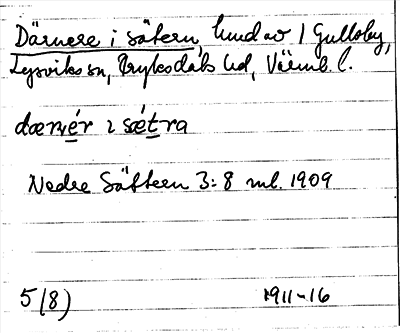 Därnere i sätern, hmd av 1 Gullsby,
Lysviks sn, Fryksdals hd, Värml. l.
dærnér i sǽtra
Nedre Sättern 3:8 ml. 1909
5(8) 1911-16